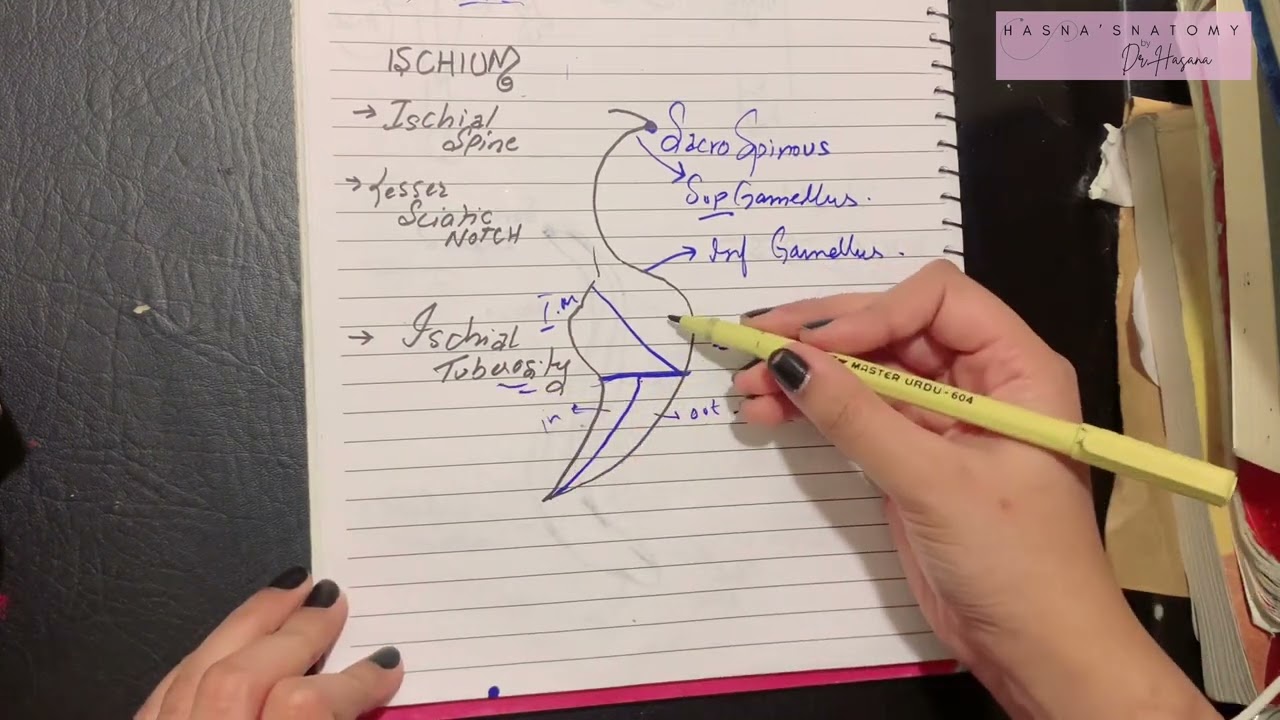 HASNA'SNATOMY
by
Dr.Hasana
ISCHIUM
→ Ischial
Spine
→ Lesser
Sciatic
NOTCH
→ Ischial
Tuberosity
Sacro Spinous
Sup Gamellus.
Inf Gamellus.
I.M
in
out
MASTER URDU-604